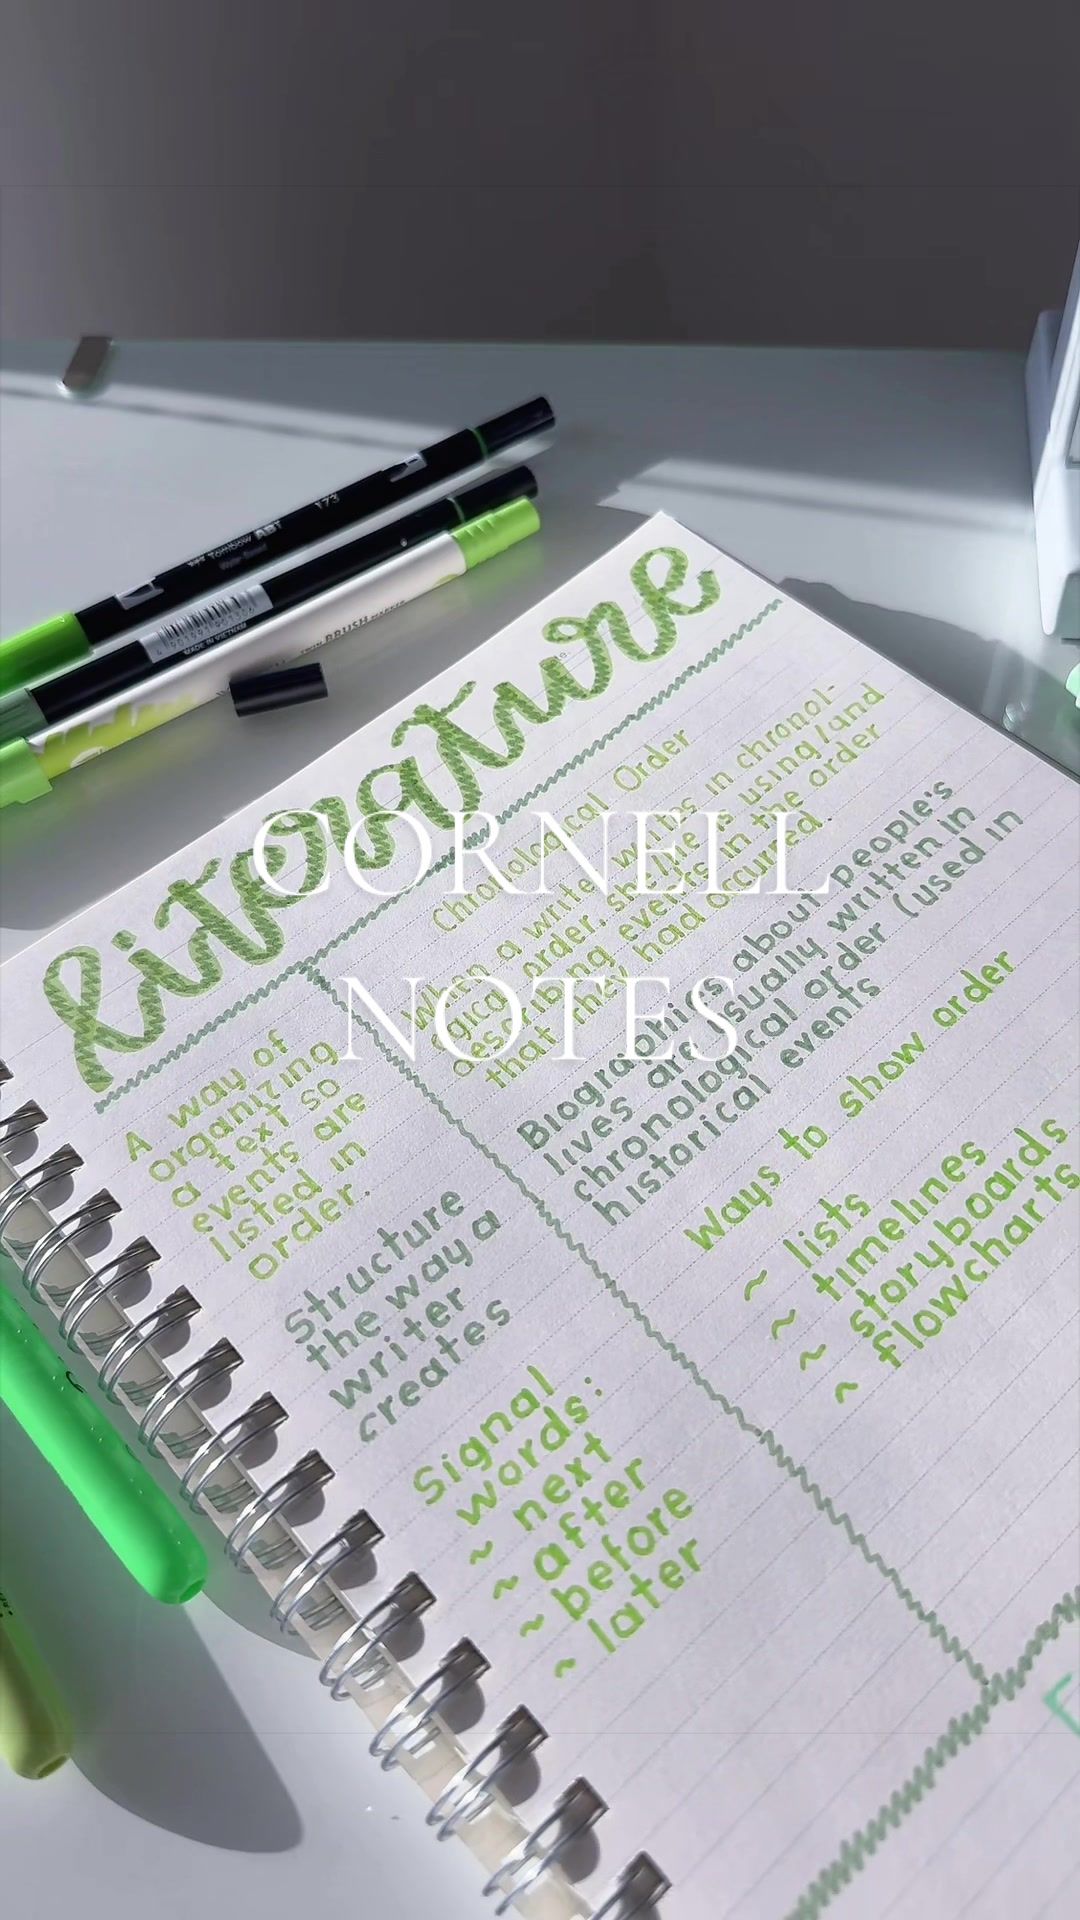 173
Tombow ABT
4 901991 901306
MADE IN VIETNAM
TWIN BRUSH MARKER
literature
CORNELL
NOTES
Chronological Order
When a writer writes in chronol-
ogical order, she/he is using/and
describing events in the order
that they had occurred.
Biographies about people's
lives are usually written in
chronological order (used in
historical events
Ways to show order
~ lists
~ timelines
~ storyboards
~ flowcharts
A way of
organizing
a text so
events are
listed in
order.
Structure
the way a
writer
creates
Signal
words:
~ next
~ after
~ before
~ later